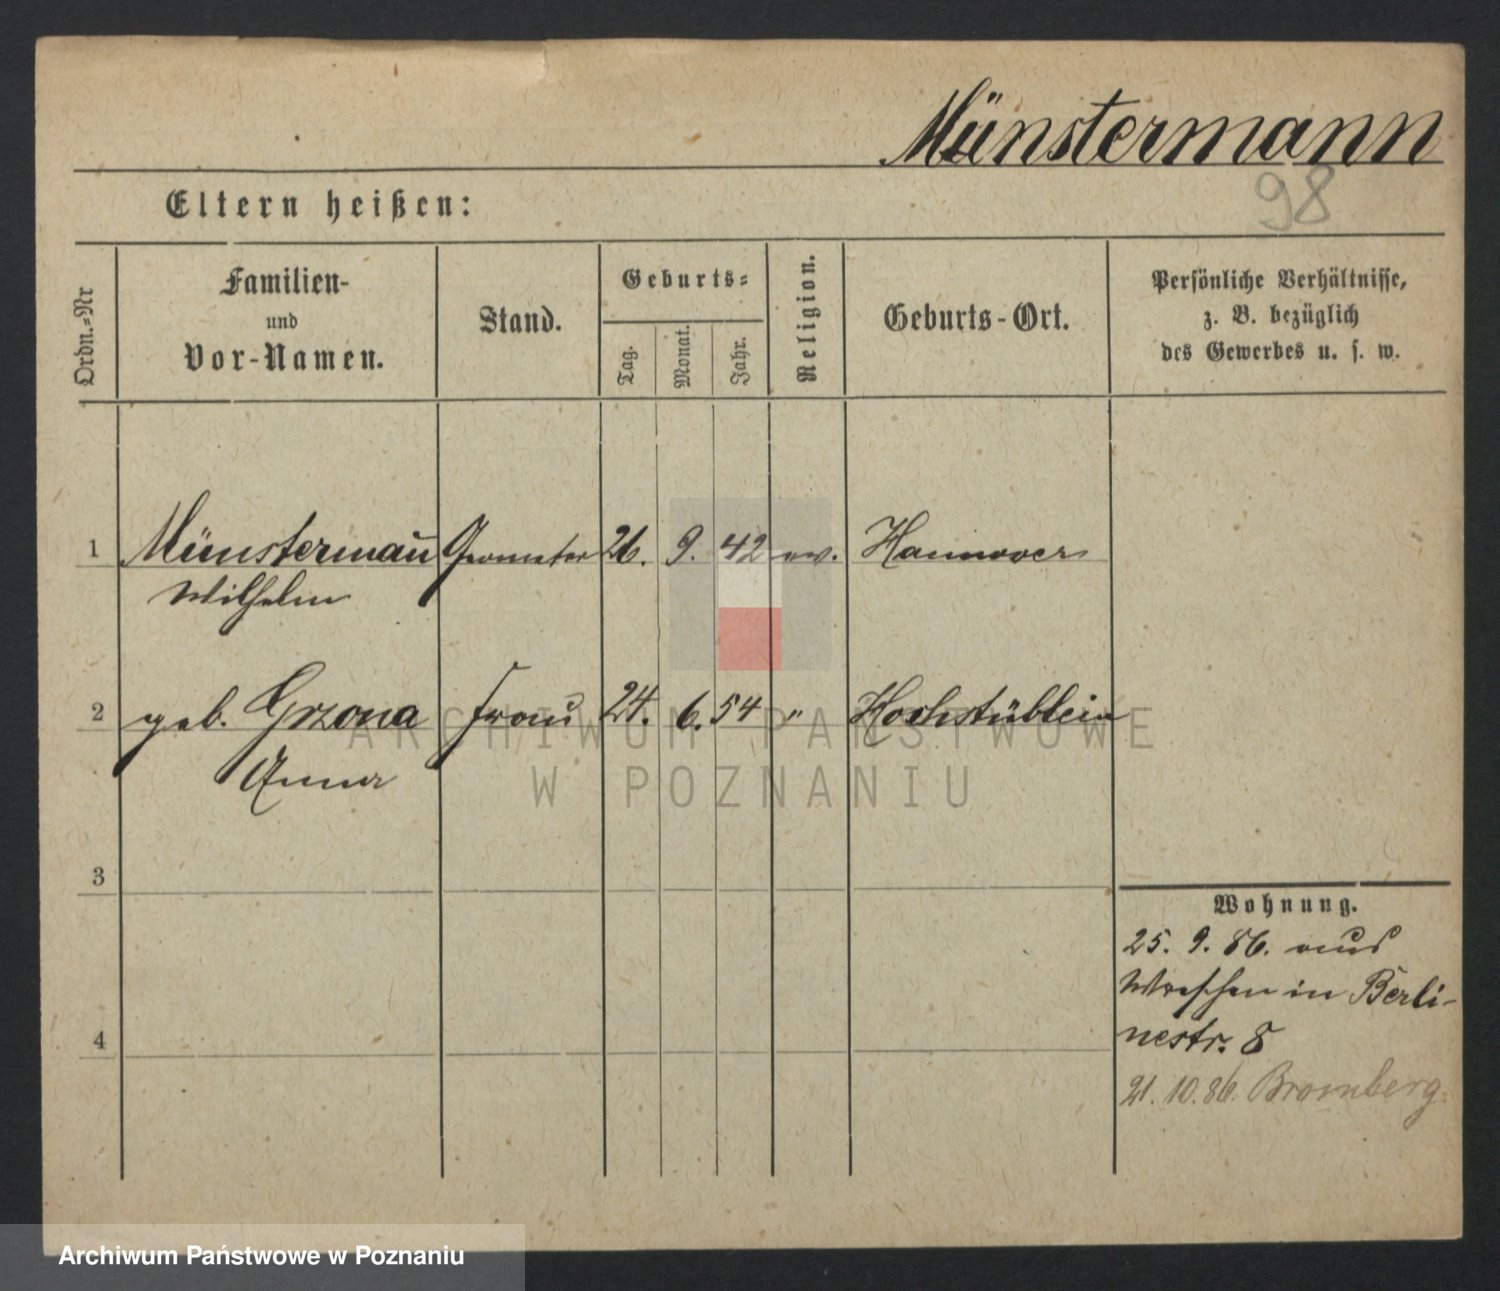 Münstermann
98
Eltern heißen:
Ordn.-Nr
Familien-
und
Vor-Namen.
Stand.
Geburts-
Tag.
Monat.
Jahr.
Religion.
Geburts-Ort.
Persönliche Verhältnisse,
z. B. bezüglich
des Gewerbes u. s. w.
1 Münstermañ Geometer 26. 9. 42 ev. Hannover
Wilhelm
2 geb. Grzona Frau 24. 6. 54 " Hochstüblein
Anna
3
4
Wohnung.
25. 9. 86. aus
Wreschen in Berli-
nestr. 8
21. 10. 86. Bromberg.
ARCHIWUM PAŃSTWOWE
W POZNANIU
Archiwum Państwowe w Poznaniu